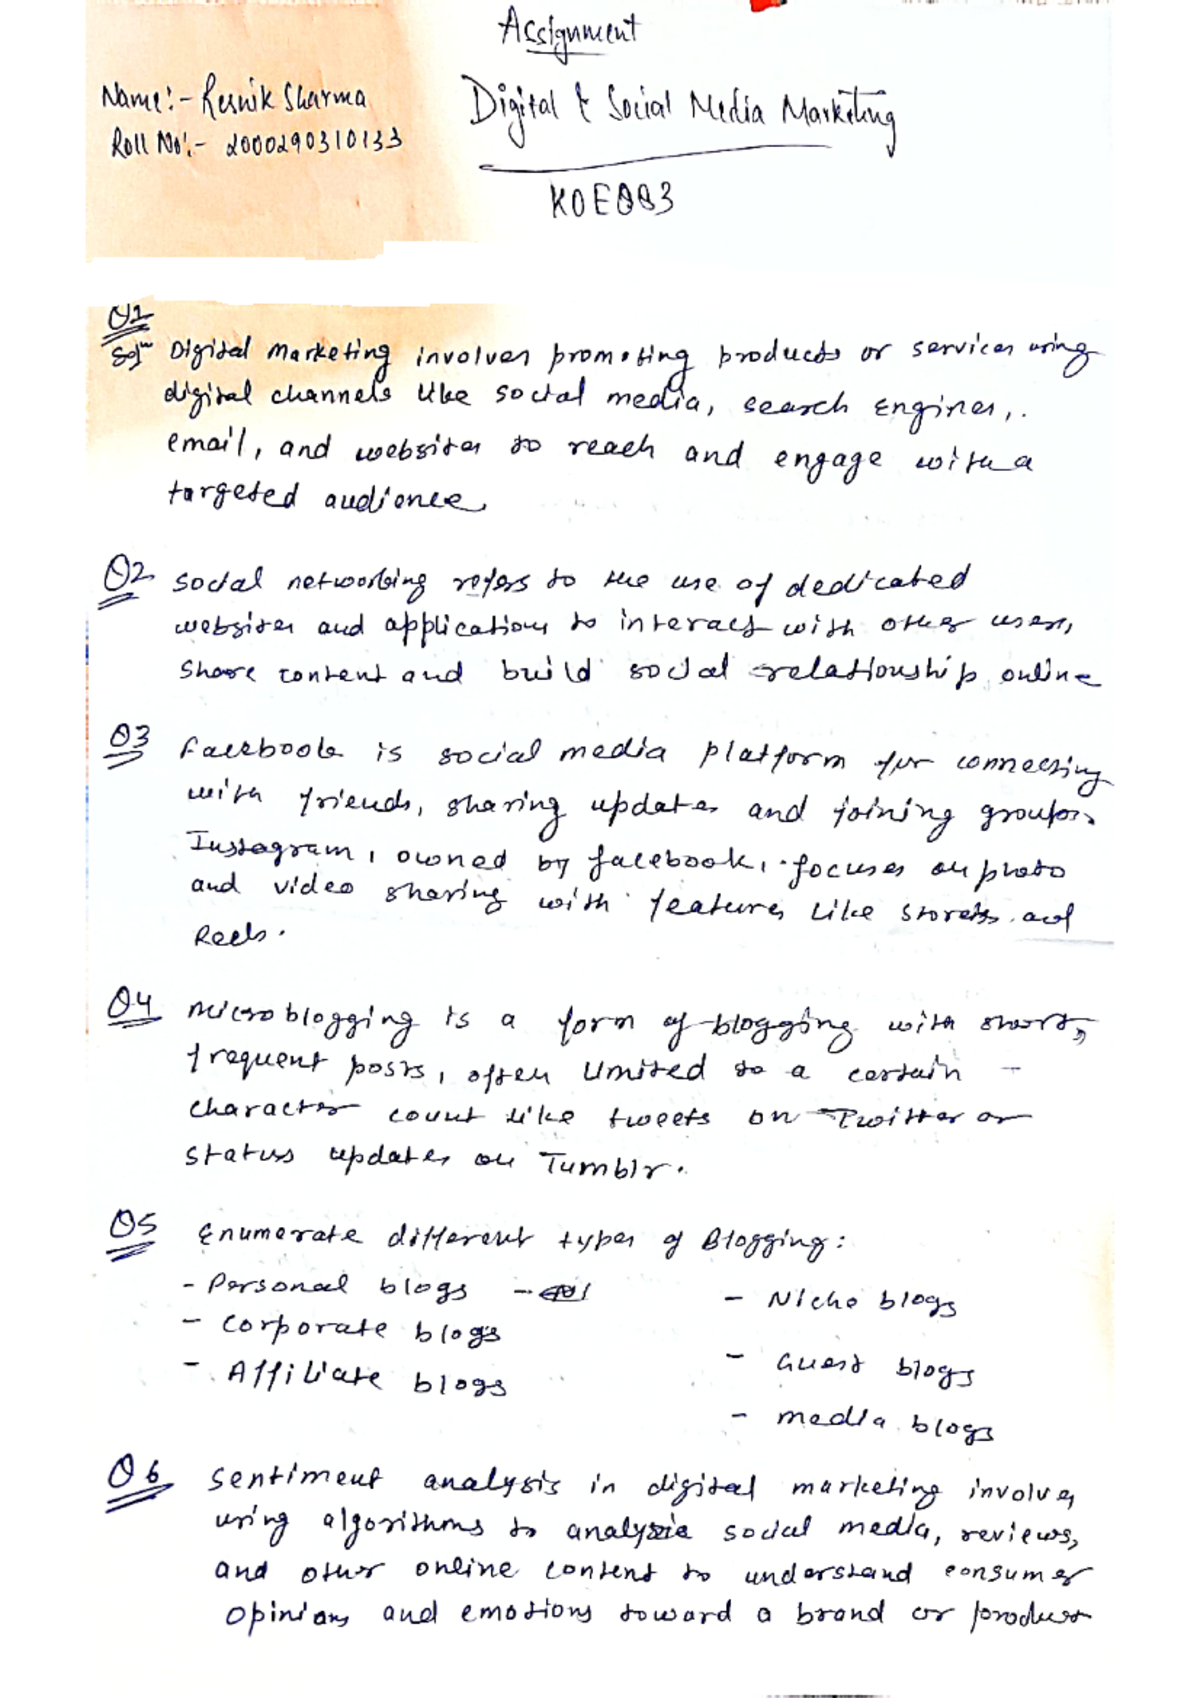 Assignment
Name:- Resnik Sharma
Digital & Social Media Marketing
Roll No:- 2000290310133
KOE083
Q1
Solⁿ Digital Marketing involves promoting products or services using
digital channels like social media, search engines,
email, and websites to reach and engage with a
targeted audience
Q2 social networking refers to the use of dedicated
websites and applications to interact with other users,
share content and build social relationship online
Q3 Facebook is social media platform for connecting
with friends, sharing updates and joining groups.
Instagram, owned by facebook, focuses on photo
and video sharing with features like stories and
Reels.
Q4 Microblogging is a form of blogging with short,
frequent posts, often limited to a certain -
character count like tweets on Twitter or
status updates on Tumblr.
Q5 Enumerate different types of Blogging:
- Personal blogs -
- Niche blogs
- Corporate blogs
- Guest blogs
- Affiliate blogs
- media blogs
Q6 sentiment analysis in digital marketing involves
using algorithms to analyze social media, reviews,
and other online content to understand consumer
opinions and emotions toward a brand or product